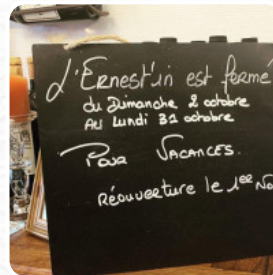 L'Ernest'in est fermé
du Dimanche 2 octobre
Au Lundi 31 octobre
Pour VACANCES.
Réouverture le 1er No